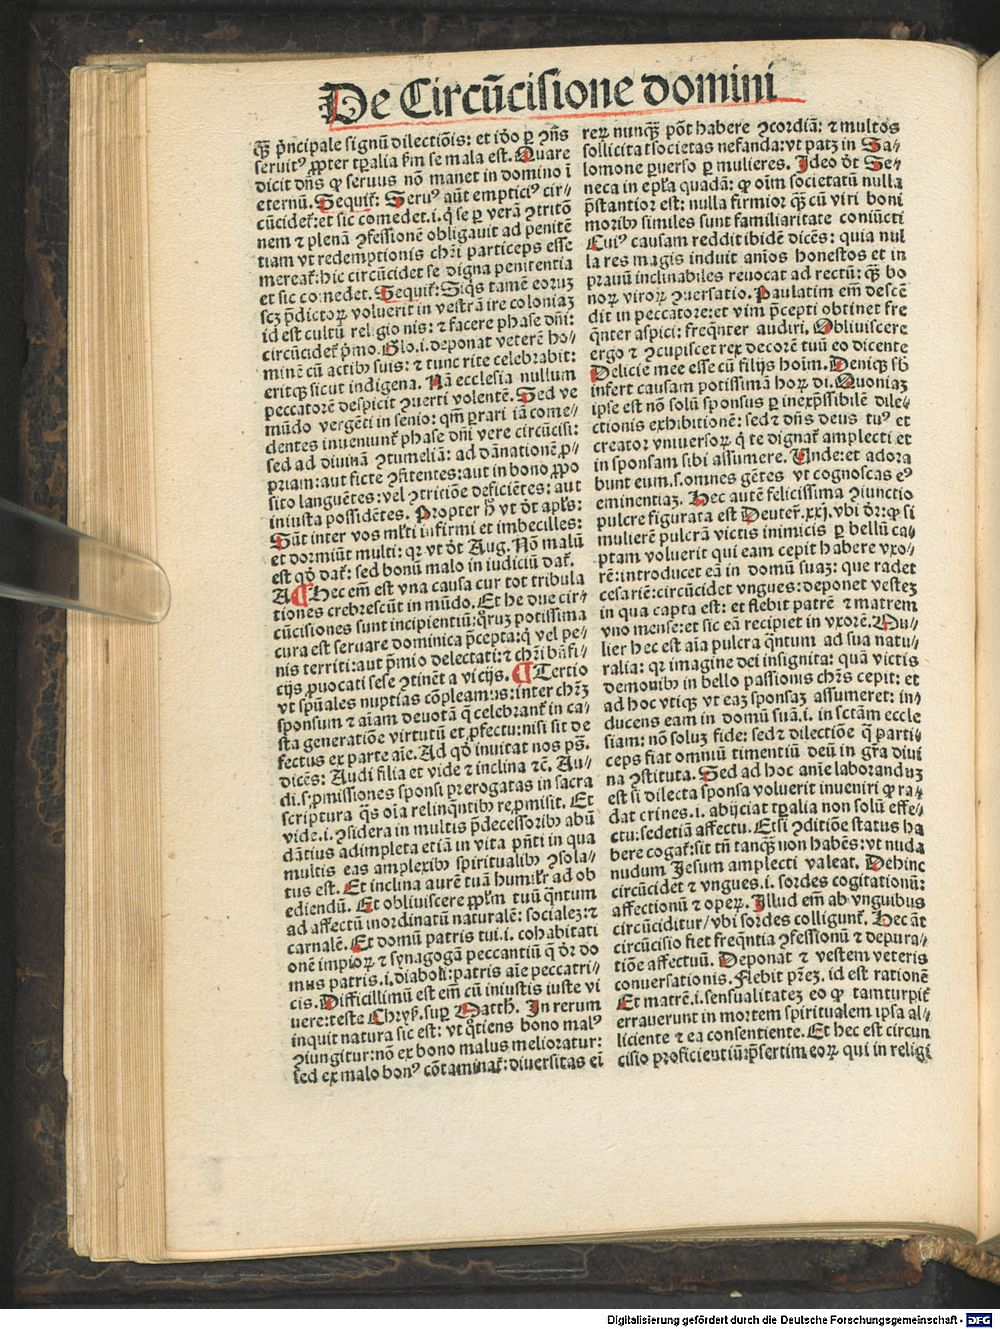 De Circūcisione domini
qꝫ pͥncipale signū dilectiōis: et iđo ꝑ ꝯñs
seruitꝰ ꝓpter tꝑalia fm̄ se mala est. Quare
dicit dn̄s ꝙ seruus nō manet in domino ī
eternū. Sequit᷑: Seruꝰ aūt empticiꝰ cir⸗
cūcidet᷑: et sic comedet .i. q̇ se ꝑ verā ꝯtritō
nem ⁊ plenā ꝯfessionē obligauit ad penitē
tiam vt redemptionis chr̄i particeps esse
mereat᷑: hic circūcidet se digna penitentia
et sic comedet. Sequit᷑: Siqs tamē eoruꝫ
scꝫ p̄dictoꝝ voluerit in vestrā ire coloniaꝫ
id est cultū religionis: ⁊ facere phase dn̄i:
circūcidet᷑ pͥmo. Glo. i. deponat veterē ho⸗
minē cū actibꝫ suis: ⁊ tunc rite celebrabit:
eritqꝫ sicut indigena. Nā ecclesia nullum
peccatorē despicit ꝯuerti volentē. Sed ve
mūdo vergēti in senio: qm̄ ꝑrari iā come⸗
dentes inueniunt᷑ phase dn̄i vere circūcisi:
sed ad diuinā ꝯtumeliā: ad dānationē ꝓ⸗
priam: aut ficte ꝯfitentes: aut in bono ꝓpo
sito languētes: vel ꝯtritiōe deficiētes: aut
iniusta possidētes. Propter hͦ vt dt̄ apl̄s:
Sūt inter vos ml̄ti infirmi et imbecilles:
et dormiūt multi: qꝛ vt dt̄ Aug. Nō malū
est qđ dat᷑: sed bonū malo in iudiciū dat᷑.
A ¶ Hec em̄ est vna causa cur tot tribula
tiones crebrescūt in mūdo. Et he due cir⸗
cūcisiones sunt incipientiū: qͣruꝫ potissima
cura est seruare dominica p̄cepta: q̇ vel pe⸗
nis territi: aut p̄mio delectati: ⁊ chr̄i bn̄fi⸗
cijs ꝓuocati sese ꝯtinēt a vicijs. ¶ Tertio
vt spūales nuptias cōpleamus: inter chr̄ꝫ
sponsum ⁊ aīam deuotā q̄ celebrant᷑ in ca⸗
sta generatiōe virtutū et ꝓfectu: nisi sit de
fectus ex parte aīe. Ad qđ inuitat nos ps̄.
dicēs: Audi filia et vide ⁊ inclina ⁊c̄. Au⸗
di .s. ꝓmissiones sponsi prerogatas in sacra
scriptura q̄s oīa relinqͣntibꝫ repromisit. Et
vide .i. ꝯsidera in multis p̄decessoribꝫ abū
dātius adimpleta etiā in vita pn̄ti in qua
multis eas amplexibꝫ spiritualibꝫ ꝯsola⸗
tus est. Et inclina aurē tuā humilr̄ ad ob
ediendū. Et obliuiscere ꝓpl̄m tuū qͣntum
ad affectū inordinatū naturalē: socialeꝫ: ⁊
carnalē. Et domū patris tui .i. cohabitati
onē impioꝝ ⁊ synagogā peccantiū q̄ dr̄ do
mus patris .i. diaboli: patris aīe peccatri⸗
cis. Difficillimū est em̄ cū iniustis iuste vi
uere: teste Chrys. suꝑ Matth. In rerum
inquit natura sic est: vt qͦtiens bono malꝰ
ꝯiungitur: nō ex bono malus melioratur:
sed ex malo bonꝰ cōtaminat᷑: diuersitas ei
reꝝ nunqꝫ pōt habere ꝯcordiā: ⁊ multos
sollicitat societas nefanda: vt patꝫ in Sa⸗
lomone ꝑuerso ꝑ mulieres. Ideo dt̄ Se⸗
neca in epl̄a quadā: ꝙ oīm societatū nulla
p̄stantior est: nulla firmior qꝫ cū viri boni
moribꝫ similes sunt familiaritate coniūcti
Cuiꝰ causam reddit ibidē dicēs: quia nul
la res magis induit aīos honestos et in
prauū inclinabiles reuocat ad rectū: qꝫ bo
noꝝ viroꝝ ꝯuersatio. Paulatim em̄ descē
dit in peccatore: et vim p̄cepti obtinet fre
qͣnter aspici: freqͣnter audiri. Obliuiscere
ergo ⁊ ꝯcupiscet rex decorē tuū eo dicente
Delicie mee esse cū filijs hoīm. Deniqꝫ sb̄
infert causam potissimā hoꝝ di. Quoniaꝫ
ipse est nō solū sponsus ꝑ inexp̄ssibilē dile⸗
ctionis exhibitionē: sedꝫ dn̄s deus tuꝰ et
creator vniuersoꝝ q̇ te dignat᷑ amplecti et
in sponsam sibi assumere. Unde: et adora
bunt eum .s. omnes gētes vt cognoscas eꝰ
eminentiaꝫ. Hec autē felicissima ꝯiunctio
pulcre figurata est Deuter. xxj. vbi dr̄: ꝙ si
mulierē pulcrā victis inimicis ꝑ bellū ca⸗
ptam voluerit qui eam cepit habere vxo⸗
rē: introducet eā in domū suaꝫ: que radet
cesariē: circūcidet vngues: deponet vesteꝫ
in qua capta est: et flebit patrē ⁊ matrem
vno mense: et sic eā recipiet in vxorē. Mu⸗
lier hec est aīa pulcra qͣntum ad sua natu⸗
ralia: qꝛ imagine dei insignita: quā victis
demonibꝫ in bello passionis chr̄s cepit: et
ad hoc vtiqꝫ vt eaꝫ sponsaꝫ assumeret: in⸗
ducens eam in domū suā .i. in sctām eccle
siam: nō soluꝫ fide: sedꝫ dilectiōe q̄ parti⸗
ceps fiat omniū timentiū deū in gr̄a diui
na ꝯstituta. Sed ad hoc anīe laboranduꝫ
est si dilecta sponsa voluerit inueniri ꝙ ra⸗
dat crines .i. abijciat tꝑalia non solū effe⸗
ctu: sed etiā affectu. Etsi ꝯditiōe status ha
bere cogat᷑: sit tn̄ tanqꝫ non habēs: vt nuda
nudum Jesum amplecti valeat. Dehinc
circūcidet ⁊ vngues .i. sordes cogitationū:
affectionū ⁊ opeꝝ. Illud em̄ ab vnguibus
circūciditur/ vbi sordes colligunt᷑. Hec āt
circūcisio fiet freqͣntia ꝯfessionū ⁊ depura⸗
tiōe affectuū. Deponat ⁊ vestem veteris
conuersationis. Flebit pr̄eꝫ, id est rationē
Et matrē .i. sensualitateꝫ eo ꝙ tam turpit᷑
errauerunt in mortem spiritualem ipsa al⸗
liciente ⁊ ea consentiente. Et hec est circun
cisio proficientiū: p̄sertim eoꝝ qui in religi
Digitalisierung gefördert durch die Deutsche Forschungsgemeinschaft - DFG